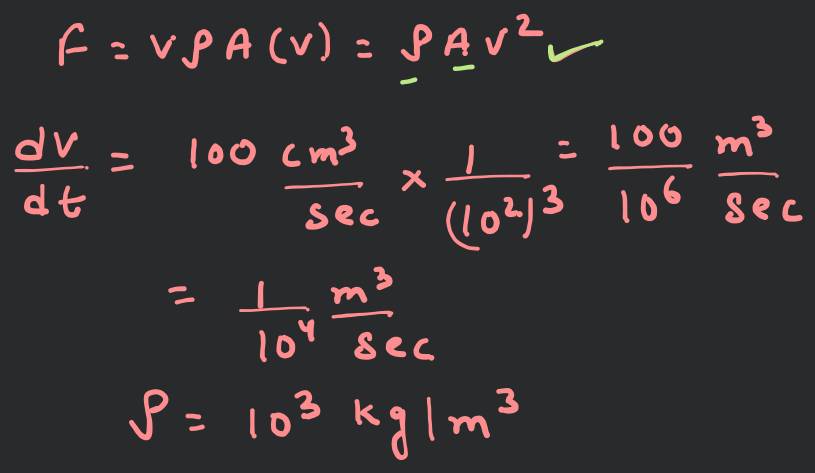 F = vρA(v) = ρAv² ✓
dV/dt = 100 cm³/sec × 1/(10²)³ = 100/10⁶ m³/sec
= 1/10⁴ m³/sec
ρ = 10³ kg/m³